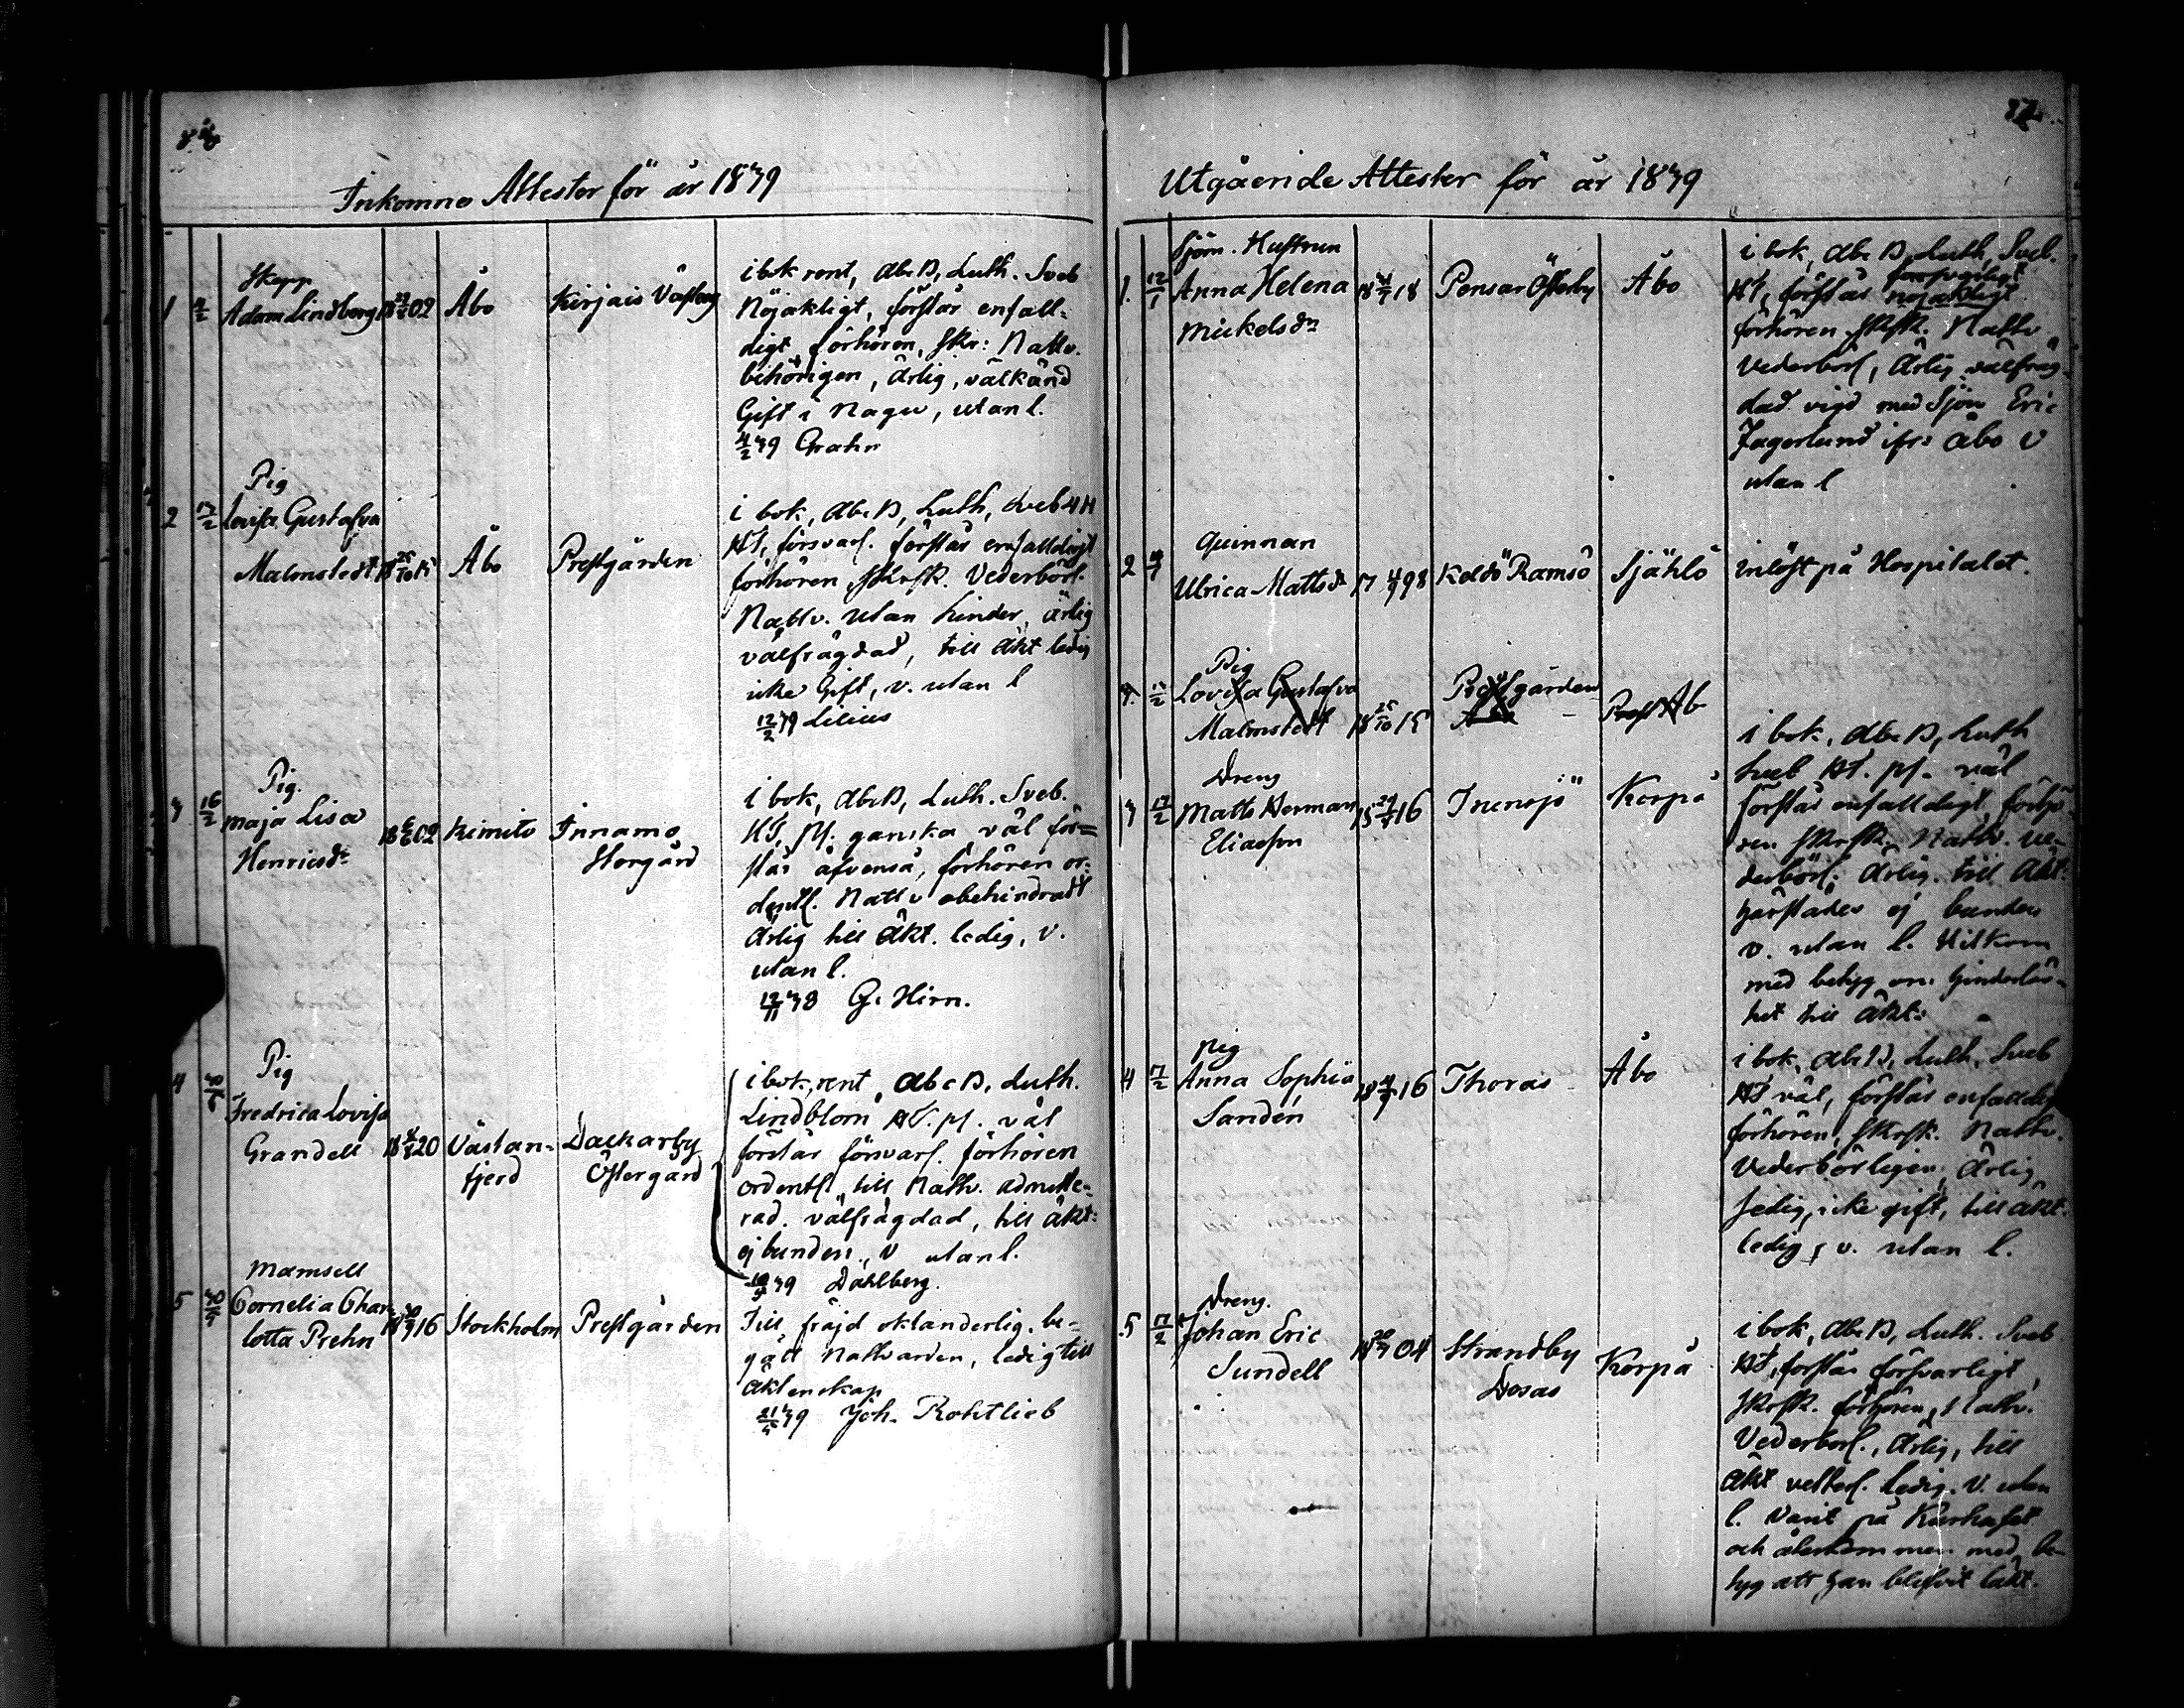 Inkomne Attester för år 1839
Skepp
1 4/2 Adam Lindberg 02 Åbo Kirjais Västerg
i bok rent, Abc B, Luth. Sveb
Nöjaktigt, förstår enfall-
digt, förhören, Skr: Nattv.
behörigen, ärlig, välkänd
Gift i Nagu, utan l.
4/2 39 Grahn
Pig
2 17/2 Lovisa Gustafva
Malmstedt 18 25/10 15 Åbo Prestgården
i bok, Abc B, Luth, Sveb
HT, försvarl. förstår enfalldigt
förhören, Skrsk. Vederbörl.
Nattv. utan hinder, ärlig
välfrägdad, till äkt ledig
icke Gift, v. utan l
12/2 39 Lilius
Pig.
3 16/2 Maja Lisa
Henricsdr 02 Kimito Innamo
Storgård
i bok, Abc B, Luth. Sveb.
HT, pl. ganska väl för-
står äfvenså, förhören or-
dentl. Nattv obehindradt
Ärlig till äkt. ledig, v.
utan l.
12/11 38 G. Hirn.
Pig
4 Fredrica Lovisa
Grandell 20 Västan-
fjerd Dalkarby
Östergård
i bok, rent, Abc B, Luth.
Lindblom HT. pl. väl
förstår försvarl. förhören
ordentl. till Nattv. admitte-
rad. välfrägdad, till äkt:
ej bunden., v utan l.
39 Dahlberg.
Mamsell
5 Cornelia Char-
lotta Prehn 16 Stockholm Prestgården
Till fräjd oklanderlig. be-
gått Nattvarden, ledig till
äktenskap
39 Joh. Rohtlieb
Utgående Attester för år 1839
Sjöm. Hustrun
1. 12/1 Anna Helena 18 Pensar Österby Åbo
Mickelsdr
i bok, Abc B, Luth, Sveb.
HT, förstår nöjaktligt
förhören, Skrsk. Nattv
Vederbörl, Ärlig välfräg-
dad vigd med Sjöm Eric
Fagerlund ifr: Åbo v
utan l
Quinnan
2 Ulrica Mattsdr 17 98 Keldö Ramsö Själö inlöst på Hospitalet.
Pig
3. 17/2 Lovisa Gustafva Prestgården
Malmstedt 18 25/10 15
Dreng
3 17/2 Matts Herman 16 Korpå
Eliasson
i bok, Abc B, Luth
Sveb HT. pl. väl
förstår enfalldigt förhö-
ren Skrsk. Nattv. ve-
derbörl; Ärlig. till äkt:
härstädes ej bunden
v. utan l. Hitkom
med betyg om hinderlös-
het till äkt:
Pig
4 17/2 Anna Sophia 16 Thorais Åbo
Sandén
i bok, Abc B, Luth, Sveb
HT väl, förstår enfalldig
förhören, Skrsk. Nattv.
Vederbörligen, Ärlig
icke gift, till äkt.
ledig, v. utan l.
Dreng.
5 17/2 Johan Eric
Sundell 04 Strandby Korpå
Dosas
i bok, Abc B, Luth. Sveb
HT, förstår försvarligt,
Skrsk. förhören, Nattv.
Vederbörl., Ärlig, till
äkt vetterl. ledig. v. utan
l. Varit på Kurhuset
och återkommen med be-
tyg att han blifvit läkt.